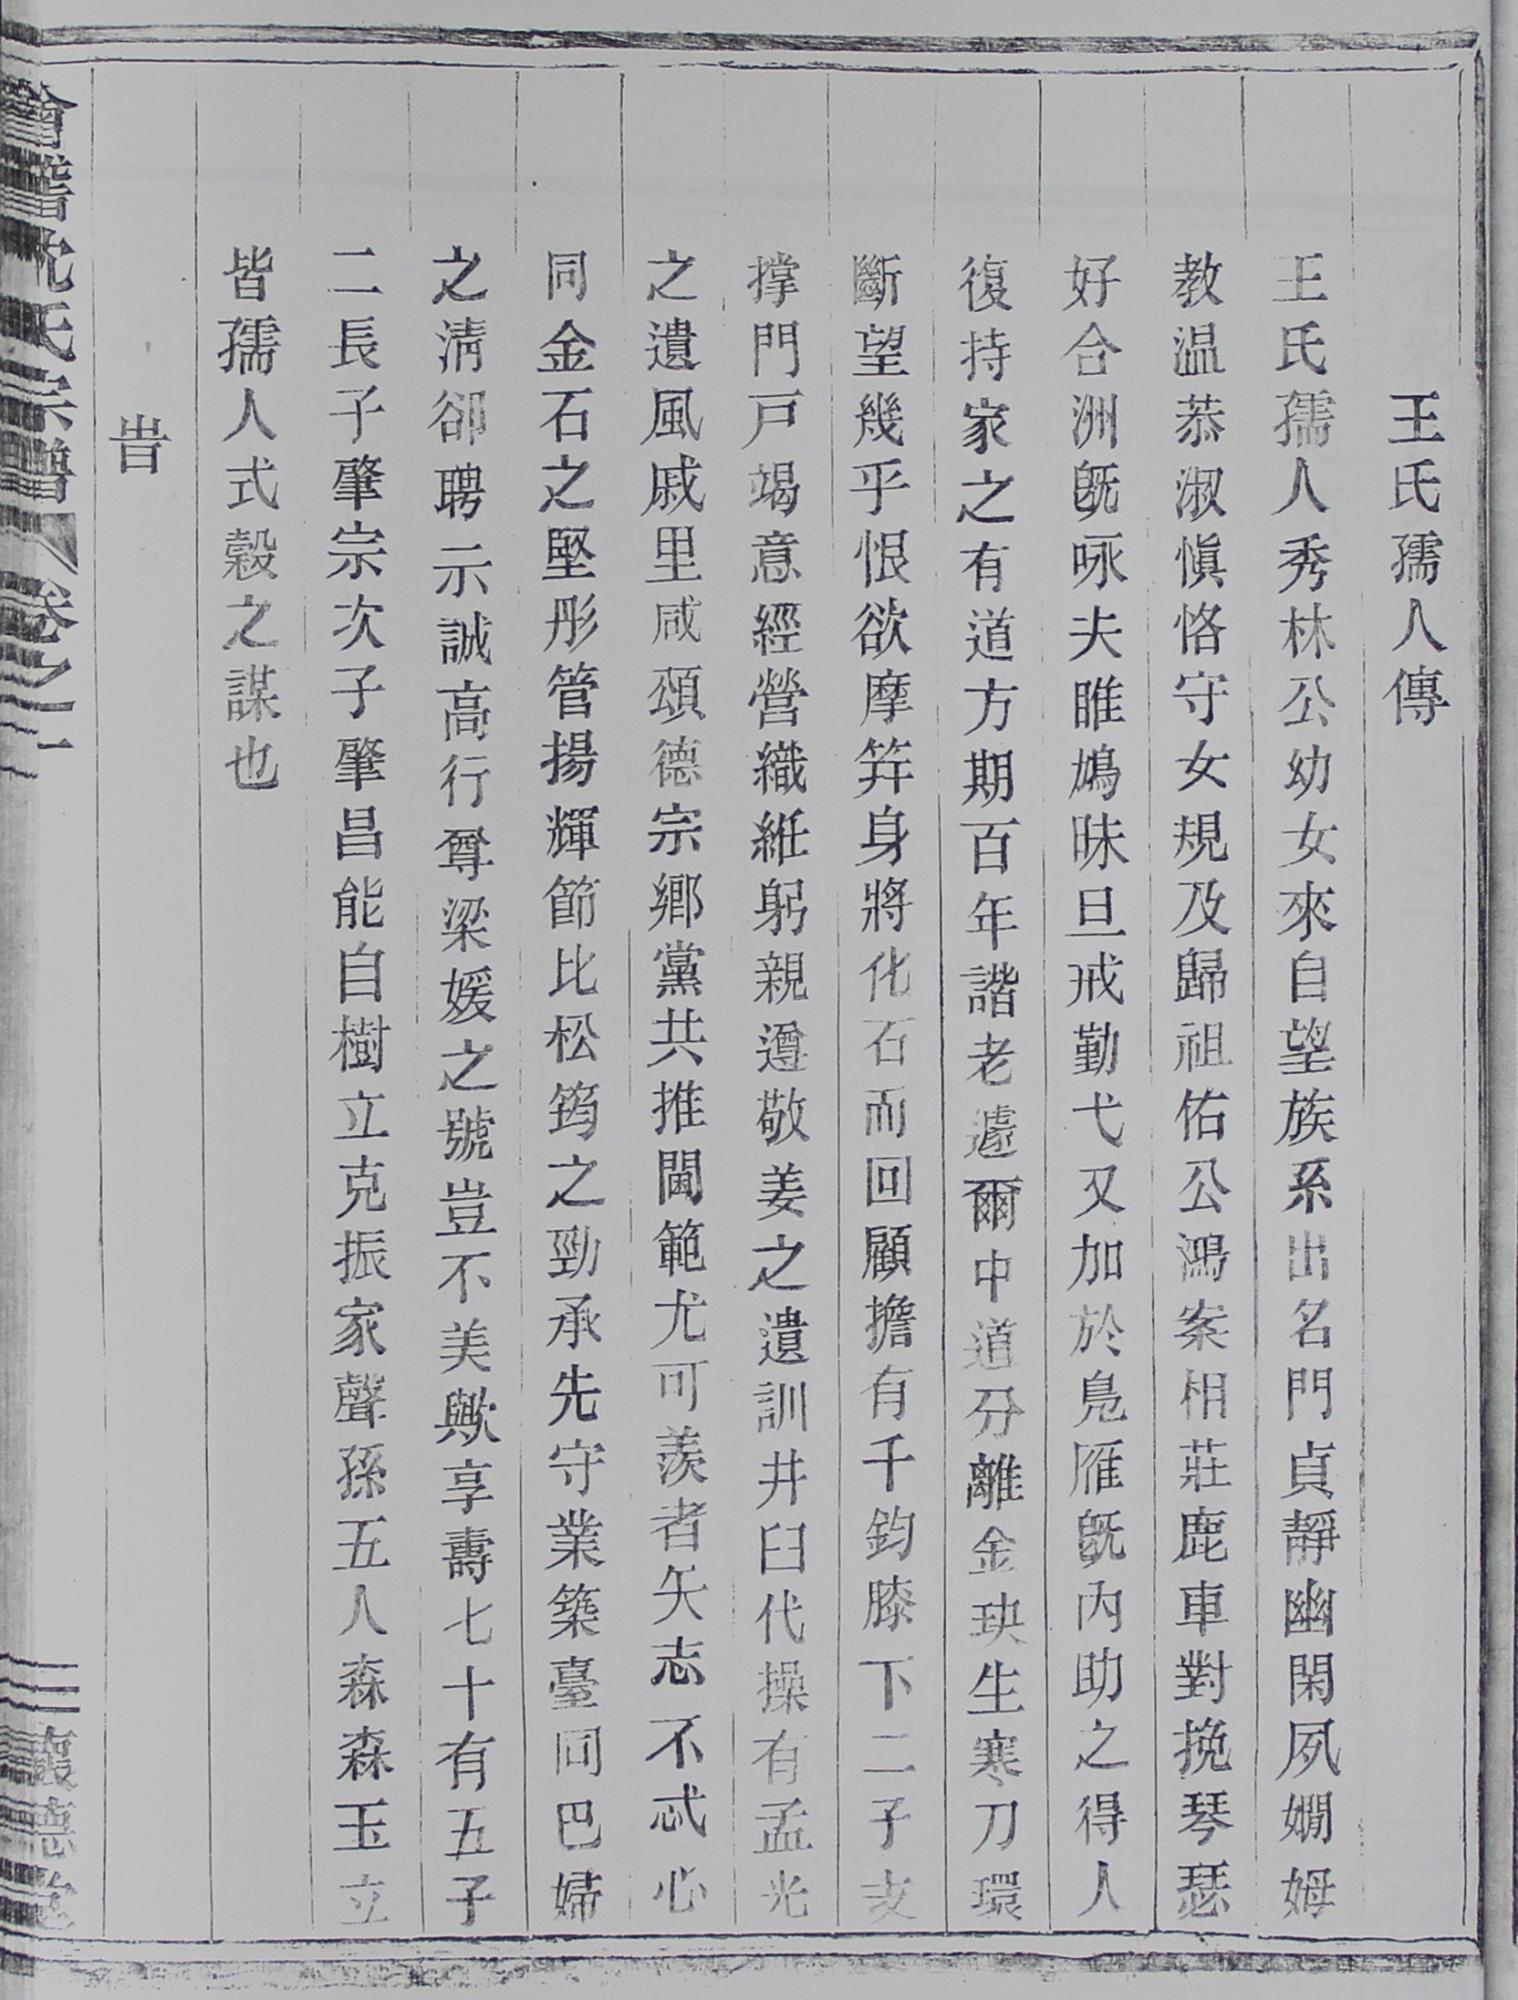 王氏孺人傳
王氏孺人秀林公幼女來自望族系出名門貞靜幽閑夙嫺姆
教温恭淑慎恪守女規及歸祖佑公鴻案相莊鹿車對挽琴瑟
好合洲旣咏夫睢鳩昧旦戒勤弋又加於鳧雁旣內助之得人
復持家之有道方期百年諧老遽爾中道分離金玦生寒刀環
斷望幾乎恨欲摩笄身將化石而回顧擔有千鈞膝下二子支
撑門戸竭意經營織紝躬親遵敬姜之遺訓井臼代操有孟光
之遺風戚里咸頌德宗鄉黨共推閫範尤可羨者矢志不忒心
同金石之堅彤管揚輝節比松筠之勁承先守業築臺同巴婦
之淸卻聘示誠高行尊梁媛之號豈不美歟享壽七十有五子
二長子肇宗次子肇昌能自樹立克振家聲孫五人森森玉立
皆孺人式穀之謀也
旹
會稽沈氏宗譜 卷之一